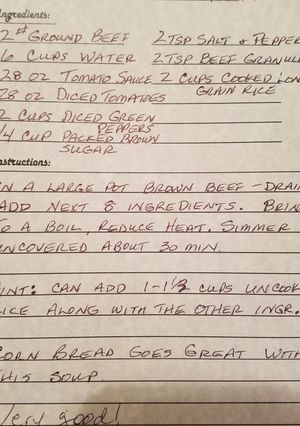 ngredients:
2# GROUND BEEF 2 TSP SALT & PEPPER
6 CUPS WATER 2 TSP BEEF GRANUL
28 OZ TOMATO SAUCE 2 CUPS COOKED LON
28 OZ DICED TOMATOES GRAIN RICE
2 CUPS DICED GREEN
PEPPERS
1/4 CUP PACKED BROWN
SUGAR
nstructions:
IN A LARGE POT BROWN BEEF - DRAIN
ADD NEXT 8 INGREDIENTS. BRIN
TO A BOIL, REDUCE HEAT. SIMMER
UNCOVERED ABOUT 30 MIN.
INT: CAN ADD 1-1 1/2 CUPS UNCOOK
ICE ALONG WITH THE OTHER INGR.
CORN BREAD GOES GREAT WITH
THIS SOUP.
Very good!